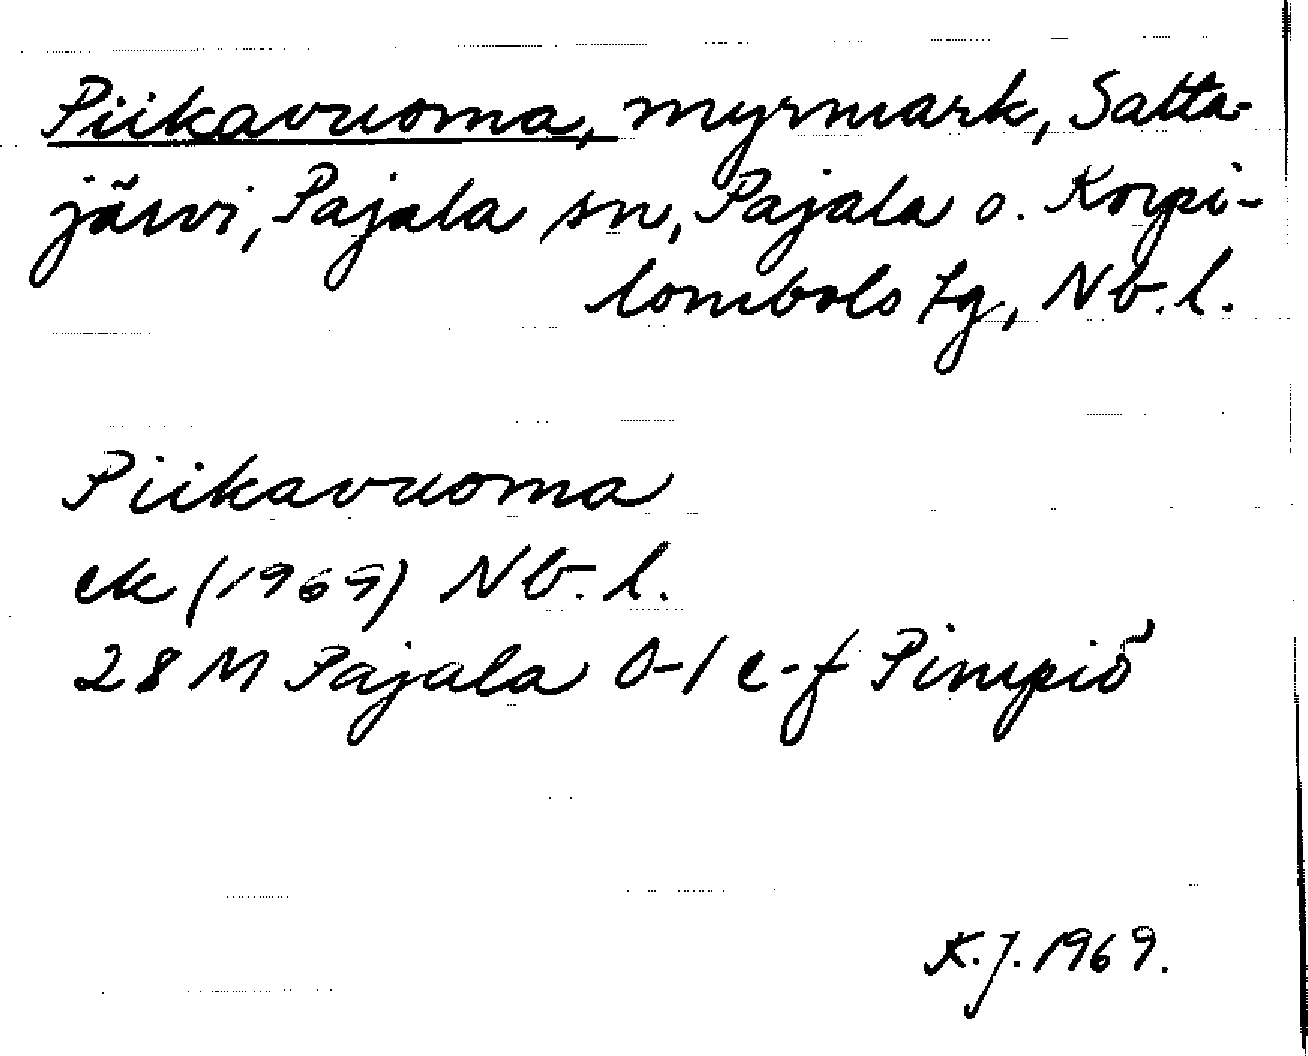 Piikavuoma, myrmark, Satta-
järvi, Pajala sn, Pajala o. Korpi-
lombolo tg, Nb. l.
Piikavuoma
ek (1969) Nb. l.
28 M Pajala 0-1 e-f Pimpiö
K.J. 1969.